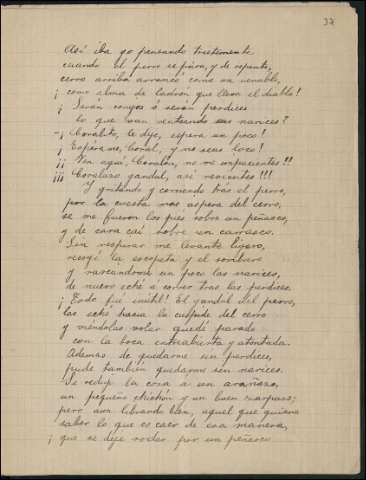 37
Así iba yo pensando tristemente
cuando el perro se pára, y de repente,
cerro arriba arrancó como un venablo,
¡como alma de ladrón que lleva el diablo!
¿Serán conejos ó serán perdices
lo que van venteando sus narices?
-¡Coralito, le dije, espera un poco!
¡Espérame, Coral, y no seas loco!
¡¡Ven aquí, Coralón, no me impacientes!!
¡¡¡Coralazo gandul, así revientes!!!
Y gritando y corriendo trás el perro,
por la cuesta más aspera del cerro,
se me fueron los piés sobre un peñasco,
y de cara caí sobre un carrasco.
Sin respirar me levanté ligero,
recogí la escopeta y el sombrero
y rascandome un poco las narices,
de nuevo eché á correr tras las perdices.
¡Todo fué inútil! El gandul del perro,
las echó hacia la cúspide del cerro
y viéndolas volar quedé parado
con la boca entreabierta y atontado.
Ademas de quedarme sin perdices,
pude también quedarme sin narices.
Se redujo la cosa a un arañazo,
un pequeño chichón y un buen zarpazo;
pero aun librando bien, aquel que quiera
saber lo que es caer de esa manera,
¡que se deje rodar por un peñasco